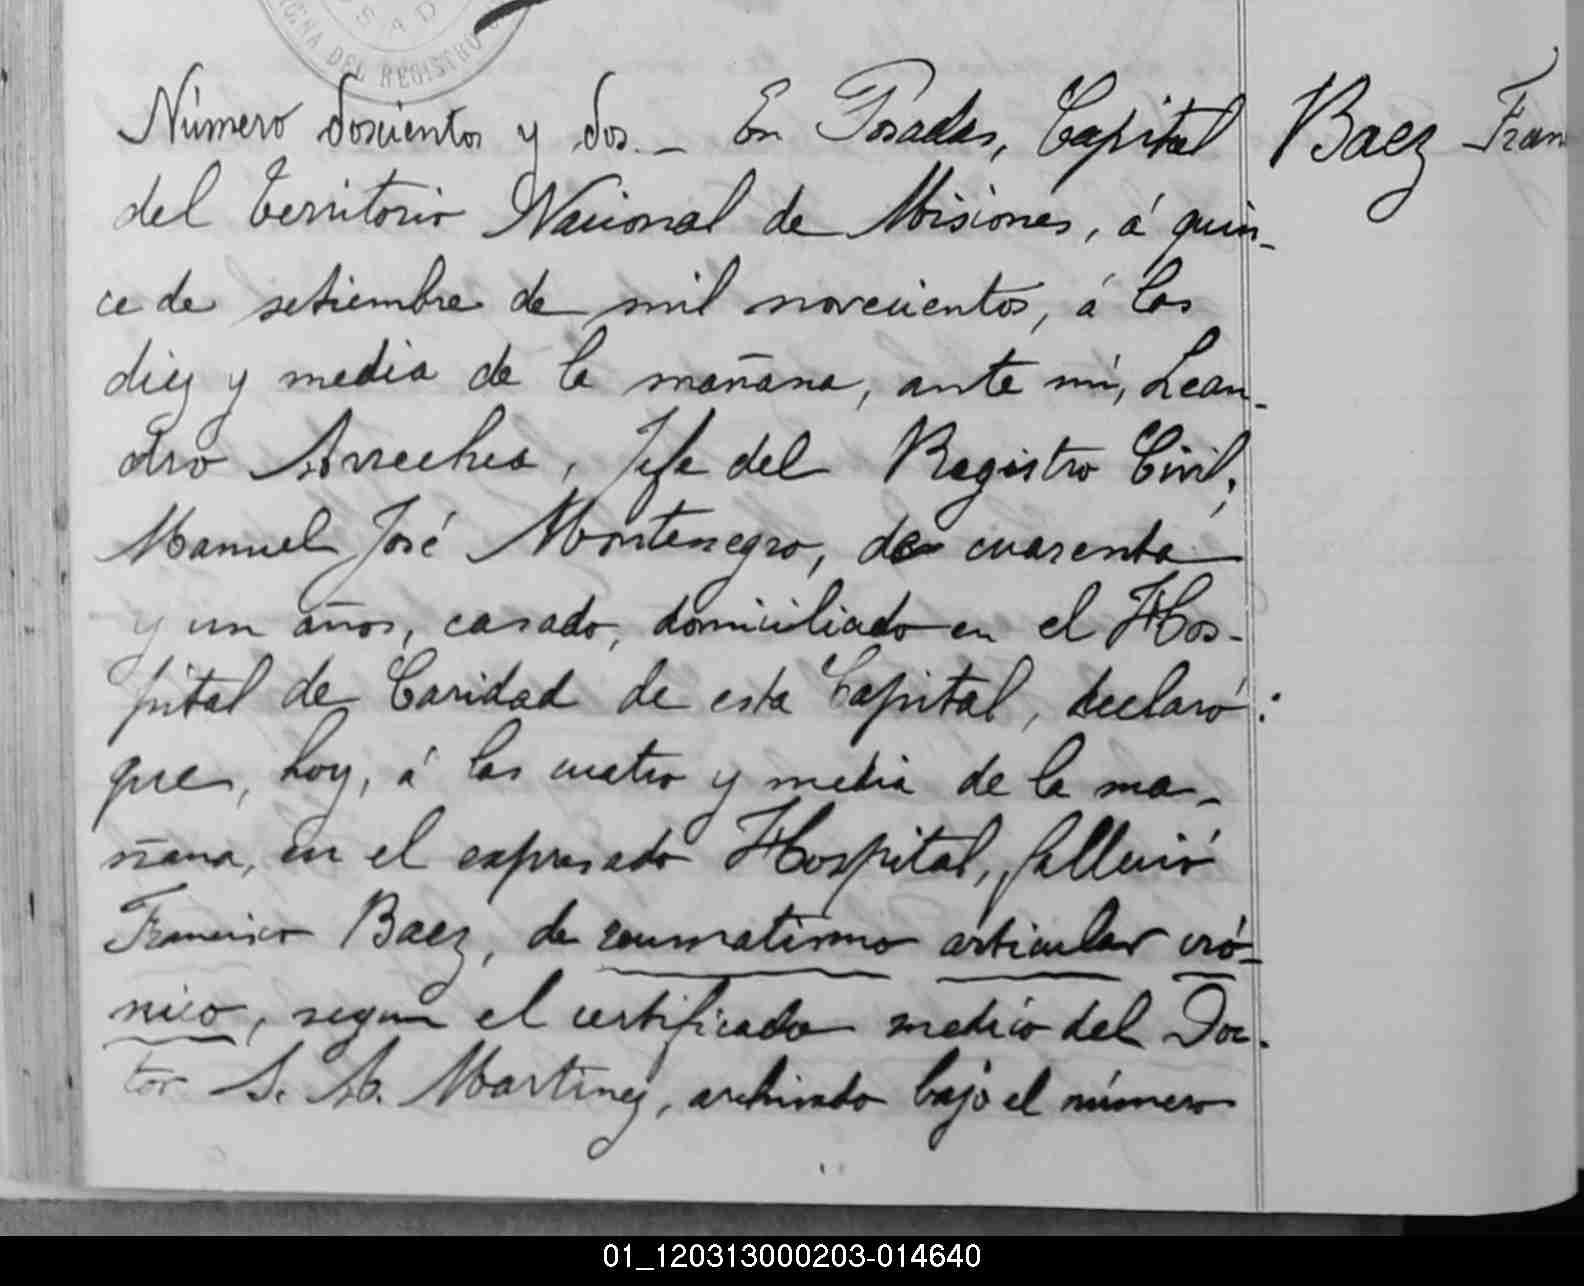 DEL REGISTRO
Número doscientos y dos._ En Posadas, Capital
Baez Fran
del Territorio Nacional de Misiones, á quin-
ce de setiembre de mil novecientos, á las
diez y media de la mañana, ante mí, Lean-
dro Arrechea, Jefe del Registro Civil,
Manuel José Montenegro, de cuarenta
y un años, casado, domiciliado en el Hos-
pital de Caridad de esta Capital, declaró:
que, hoy, á las cuatro y media de la ma-
ñana, en el expresado Hospital, falleció
Francisco Baez, de reumatismo articular cró-
nico, segun el certificado medico del Doc-
tor S. A. Martinez, archivado bajo el número
01_120313000203-014640